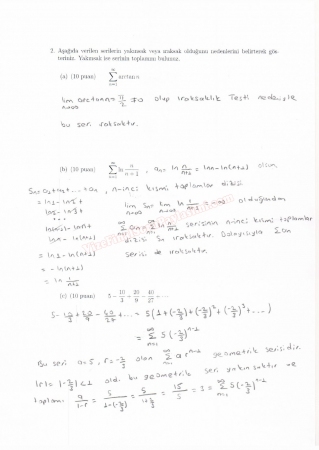 2. Aşağıda verilen serilerin yakınsak veya ıraksak olduğunu nedenlerini belirterek gös-
teriniz. Yakınsak ise serinin toplamını bulunuz.
(a) (10 puan) ∑_{n=1}^{∞} arctan n
lim_{n→∞} arctan n = π/2 ≠ 0 olup ıraksaklık Testi nedeniyle
bu seri ıraksaktır.
(b) (10 puan) ∑_{n=1}^{∞} ln n/(n+1) , a_n = ln n/(n+1) = ln n - ln(n+1) olsun
S_n = a_1 + a_2 + ... + a_n , n-inci kısmi toplamlar dizisi
= ln 1 - ln 2 +
ln 2 - ln 3 + lim_{n→∞} S_n = lim_{n→∞} ln 1/(n+1) = -∞ olduğundan
ln(n-1) - ln n + ∑_{n=1}^{∞} a_n = ∑_{n=1}^{∞} ln n/(n+1) serisinin n-inci kısmi toplamlar
ln n - ln(n+1) dizisi S_n ıraksaktır. Dolayısıyla ∑ a_n
= ln 1 - ln(n+1) serisi de ıraksaktır.
= - ln(n+1)
= ln 1/(n+1)
(c) (10 puan) 5 - 10/3 + 20/9 - 40/27 + ...
5 - 10/3 + 20/9 - 40/27 + ... = 5 ( 1 + (-2/3) + (-2/3)^2 + (-2/3)^3 + ... )
= ∑_{n=1}^{∞} 5 (-2/3)^{n-1}
Bu seri a=5, r=-2/3 olan ∑_{n=1}^{∞} a r^{n-1} geometrik serisidir.
|r| = |-2/3| < 1 old. bu geometrik seri yakınsaktır ve
toplamı a/(1-r) = 5/(1-(-2/3)) = 5/(1+2/3) = 15/5 = 3 = ∑_{n=1}^{∞} 5 (-2/3)^{n-1}